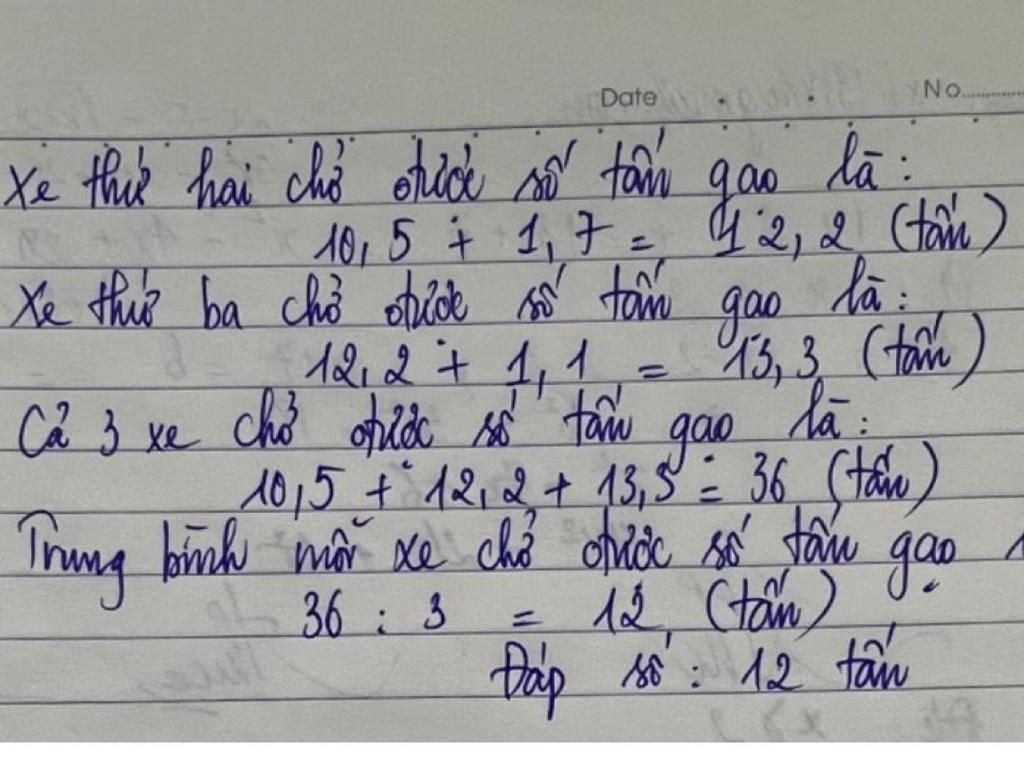 Date No.
Xe thứ hai chở được số tấn gạo là:
10,5 + 1,7 = 12,2 (tấn)
Xe thứ ba chở được số tấn gạo là:
12,2 + 1,1 = 13,3 (tấn)
Cả 3 xe chở được số tấn gạo là:
10,5 + 12,2 + 13,3 = 36 (tấn)
Trung bình mỗi xe chở được số tấn gạo
36 : 3 = 12 (tấn)
Đáp số: 12 tấn